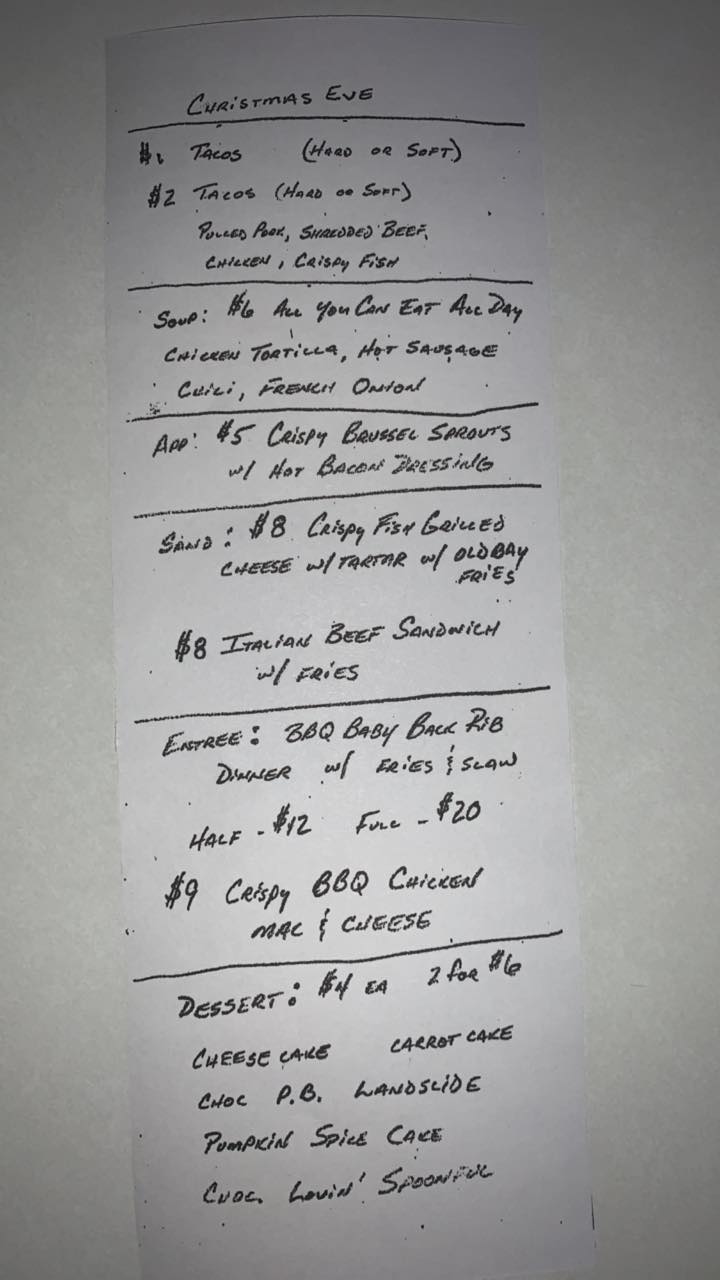 CHRISTMAS EVE
$1 TACOS (HARD OR SOFT)
$2 TACOS (HARD OR SOFT)
PULLED PORK, SHREDDED BEEF,
CHICKEN, CRISPY FISH
SOUP: $6 ALL YOU CAN EAT ALL DAY
CHICKEN TORTILLA, HOT SAUSAGE
CHILI, FRENCH ONION
APP: $5 CRISPY BRUSSEL SPROUTS
w/ HOT BACON DRESSING
SAND: $8 CRISPY FISH GRILLED
CHEESE w/ TARTAR w/ OLD BAY
FRIES
$8 ITALIAN BEEF SANDWICH
w/ FRIES
ENTREE: BBQ BABY BACK RIB
DINNER w/ FRIES & SLAW
HALF - $12 FULL - $20
$9 CRISPY BBQ CHICKEN
MAC & CHEESE
DESSERT: $4 EA 2 FOR $6
CHEESE CAKE CARROT CAKE
CHOC P.B. LANDSLIDE
PUMPKIN SPICE CAKE
CHOC. LOVIN' SPOONFUL